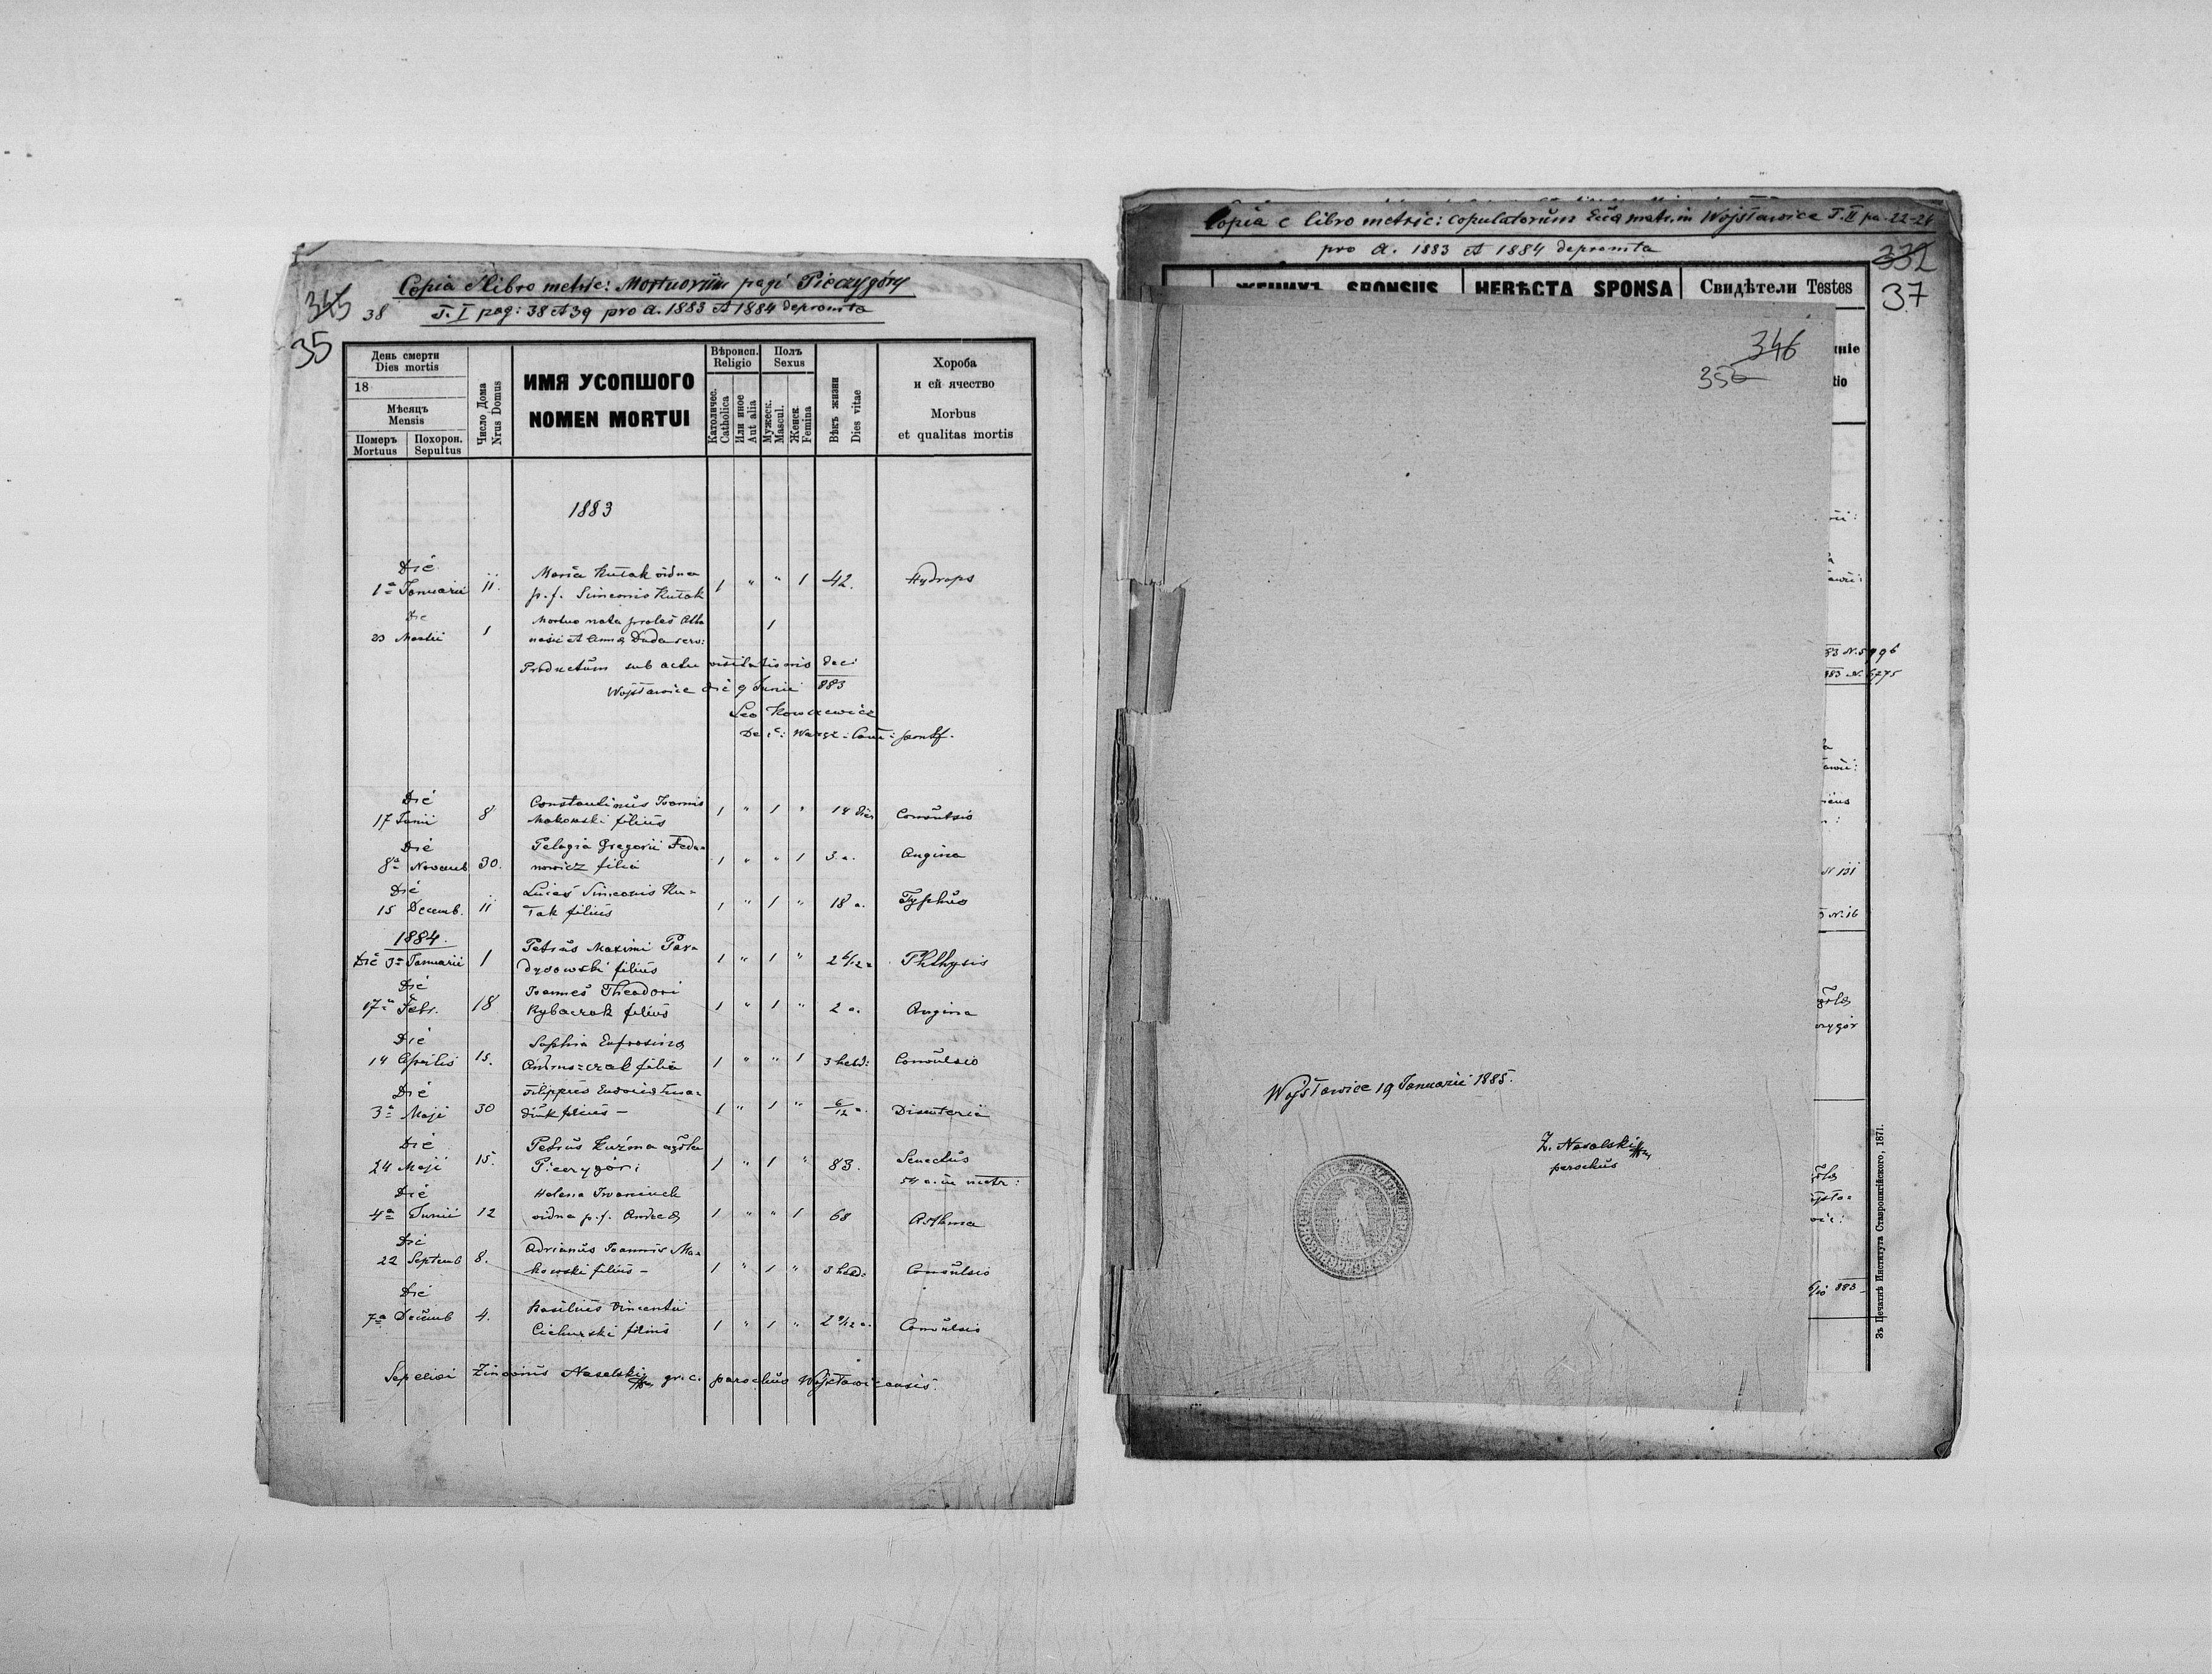 Copia e libro metric: Mortuorum pagi Pieczygóry
T. I pag: 38 et 39 pro a. 1883 et 1884 depromta
345 38
35
День смерти
Dies mortis
18
Мѣсяцъ
Mensis
Померъ
Mortuus
Похорон.
Sepultus
Число Дома
Nrus Domus
ИМЯ УСОПШОГО
NOMEN MORTUI
Вѣроисп.
Religio
Католичес.
Catholica
Или иное
Aut alia
Полъ
Sexus
Мужеск.
Mascul.
Женск.
Femina
Вѣкъ жизни
Dies vitae
Хороба
и ей ячество
Morbus
et qualitas mortis
1883
Die
1a Januarii 11. Maria Kutak vidua 1 " " 1 42. Hydrops
p. f. Simeonis Kutak
Die
23 Martii 1 Mortuo nata proles Atha
nasii et Anna Duda serv: 1
Productum sub actu visitationis deci
Wojsławice die 9 Junii 883
Leo
Dec: Waręż: pontf.
Die
17 Junii 8 Constantinus Joannis 1 " 1 " 14 dies Convulsio
Makowski filius
Die
8a Novemb 30. Pelagia Gregorii Fedu= 1 " " 1 3 a. Angina
nowicz filia
Die
15 Decemb. 11 Lucas Simeonis Ku= 1 " 1 " 18 a. Typhus
tak filius
1884.
Die 3a Januarii 1 Petrus Maximi Par= 1 " 1 " 2 Phthysis
dysowski filius
Die
17a Febr. 18 Joannes Theodori 1 " 1 " 2 a. Angina
Rybaczok filius
Die
14 Aprilis 15. Sophia Eufrosina 1 " " 1 3 hebd: Convulsio
filia
Die
3a Maji 30 Filippus 1 " 1 " 6/12 a. Disenteria
filius —
Die
24 Maji 15. Petrus Kuźma 1 " 1 " 83. Senectus
Pieczygóri 54 a. in matr:
Die
4a Junii 12 Helena Iwaniuch 1 " " 1 68 Asthma
vidua p. f. Andreæ
Die
22 Septemb 8. Adrianus Joannis Ma= 1 " 1 " 3 hebd: Convulsio
kowski filius —
Die
7a Decemb 4. Basilius Vincentii 1 " 1 " 2 9/12 a. Convulsio
Cichurski filius
Sepelivi Zinovius Nasalski gr. c. parochus Wojsławicensis.
Copia e libro metric: Copulatorum Eccl matr. in Wojsławice T. II pa. 22-24
pro a. 1883 et 1884 depromta
332
37
ЖЕНИХЪ SPONSUS
НЕВѢСТА SPONSA
Свидѣтели Testes
346
35
83 N. 5996
883 N. 6275
N 131
N. 16
883
Wojsławice 19 Januarii 1885.
Z. Nasalski
parochus
Зъ Печатнѣ Института Ставропигійского, 1871.